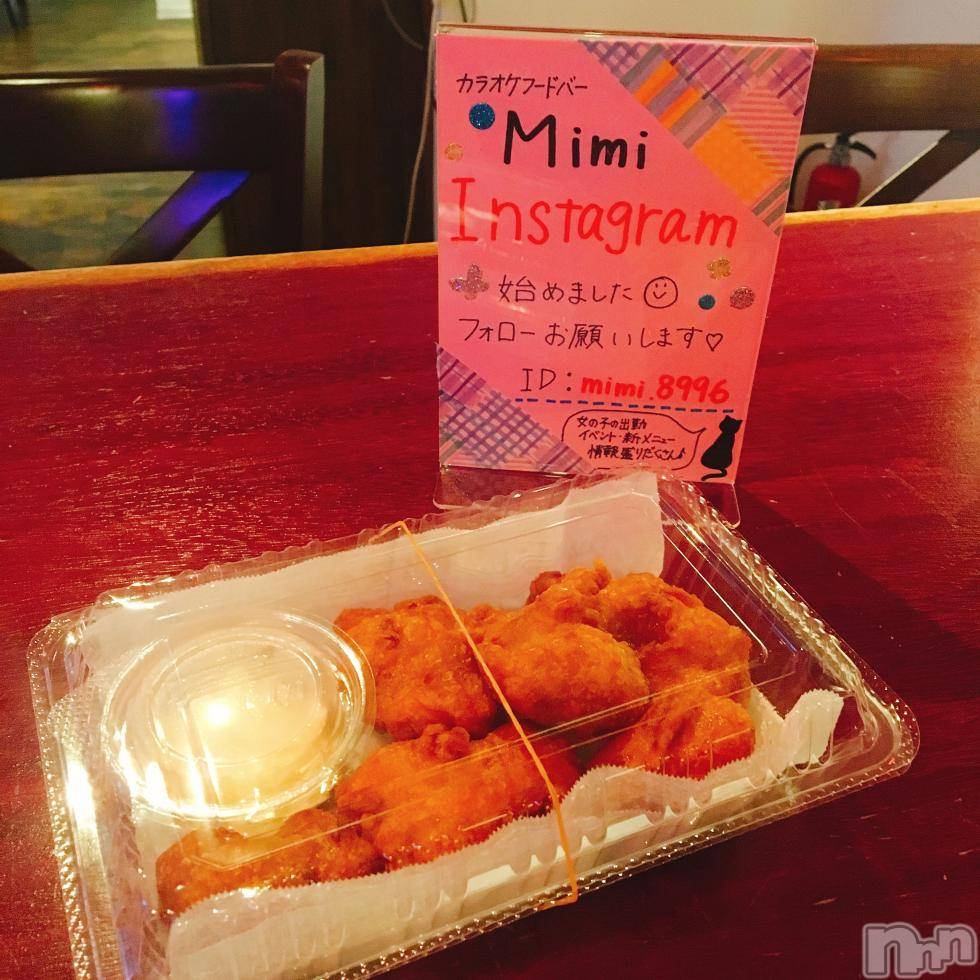 カラオケフードバー
Mimi
Instagram
始めました
フォローお願いします♡
ID：mimi.8996
女の子の出勤
イベント・新メニュー
情報盛りだくさん♪